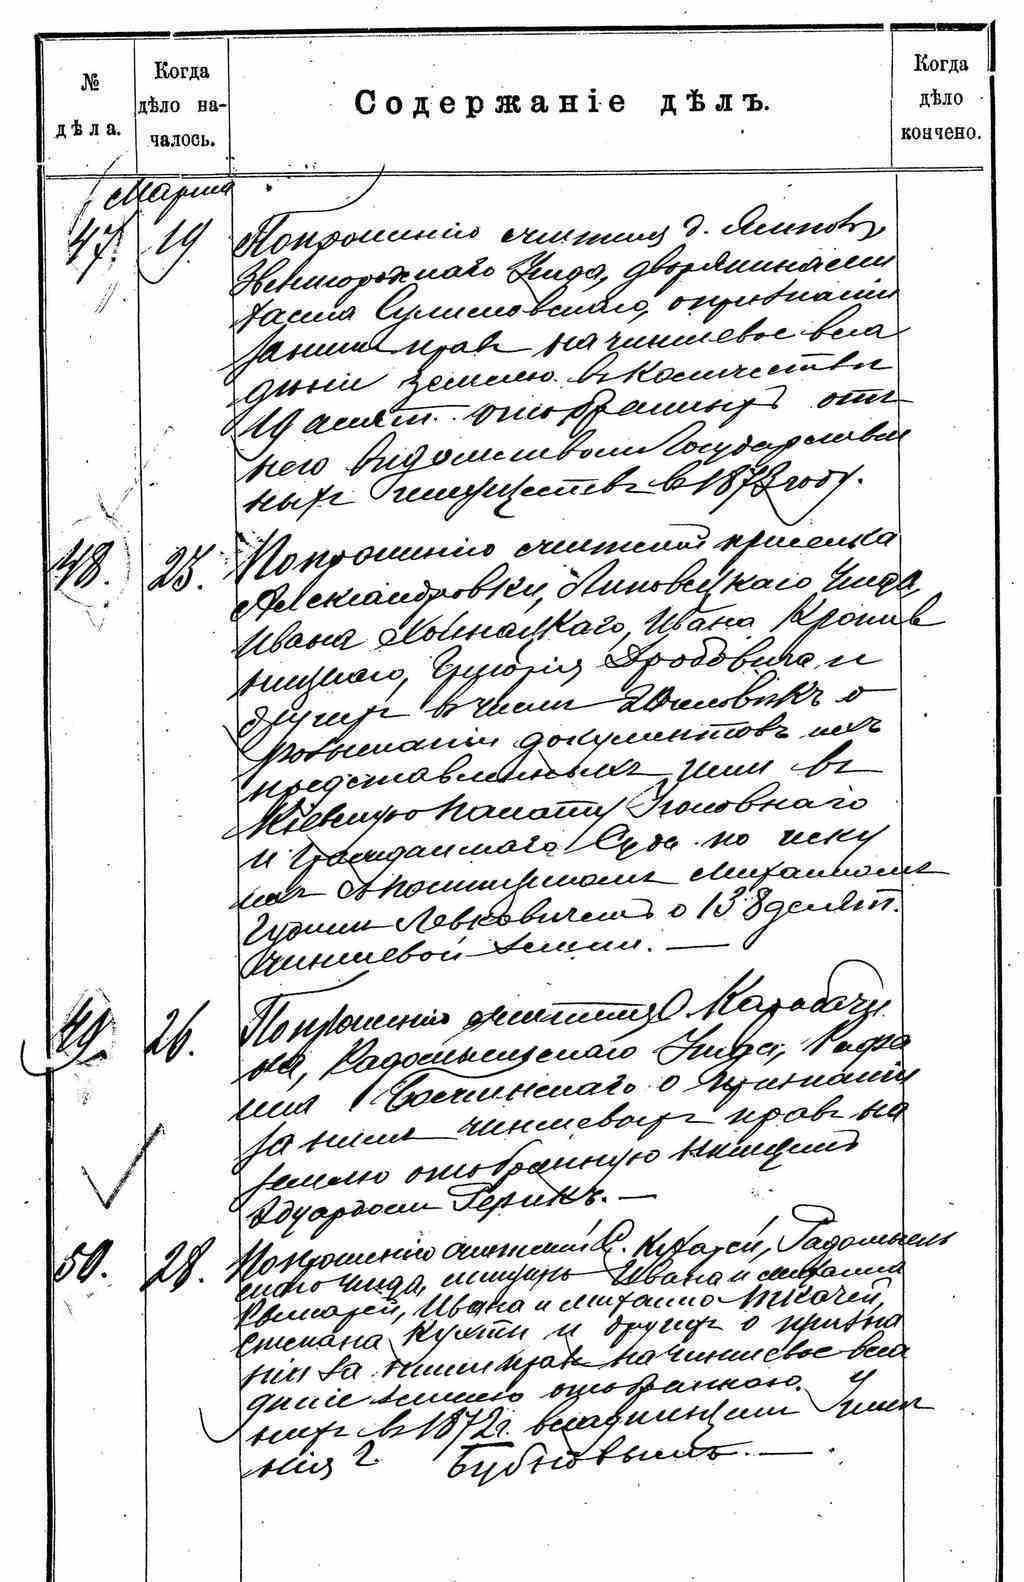 № дѣла.
Когда дѣло на-
чалось.
Содержаніе дѣлъ.
Когда дѣло кончено.
Марта
47. 19. По прошенію жителя д.
Звенигородскаго Уѣзда, дворянина
о признаніи
за нимъ правъ на чиншевое вла
дѣніе землею въ количествѣ
19 десят. отобранныхъ отъ
него вѣдомствомъ Государствен
ныхъ имуществъ въ 1873 году.
48. 23. По прошенію жителей приселка
Александровки, Липовецкаго Уѣзда,
Ивана Хойнацкаго, Ивана Кропив
ницкаго, Григорія Дробовича и
другихъ въ числѣ 20 человѣкъ о
розысканіи документовъ ихъ
представленныхъ ими въ
Кіевскую Палату Уголовнаго
и Гражданскаго Суда по иску
ихъ съ помѣщикомъ Михаиломъ
Левковичемъ о 138 десят.
чиншевой земли. —
49. 26. По прошенію жителя с. Карабачи
на, Радомысльскаго Уѣзда, Рафа
ила о признаніи
за нимъ чиншевыхъ правъ на
землю отобранную помѣщикомъ
Эдуардомъ —
50. 28. По прошенію жителей с. Кухарей, Радомысль
скаго Уѣзда, мѣщанъ Ивана и Михаила
Ивана и Михаила Ткачей,
Степана Кухти и другихъ о призна
ніи за ними правъ на чиншевое вла
дѣніе землею отобранною
нихъ въ 1872 г. владѣльцемъ Имѣ
нія г. Бубновымъ. —